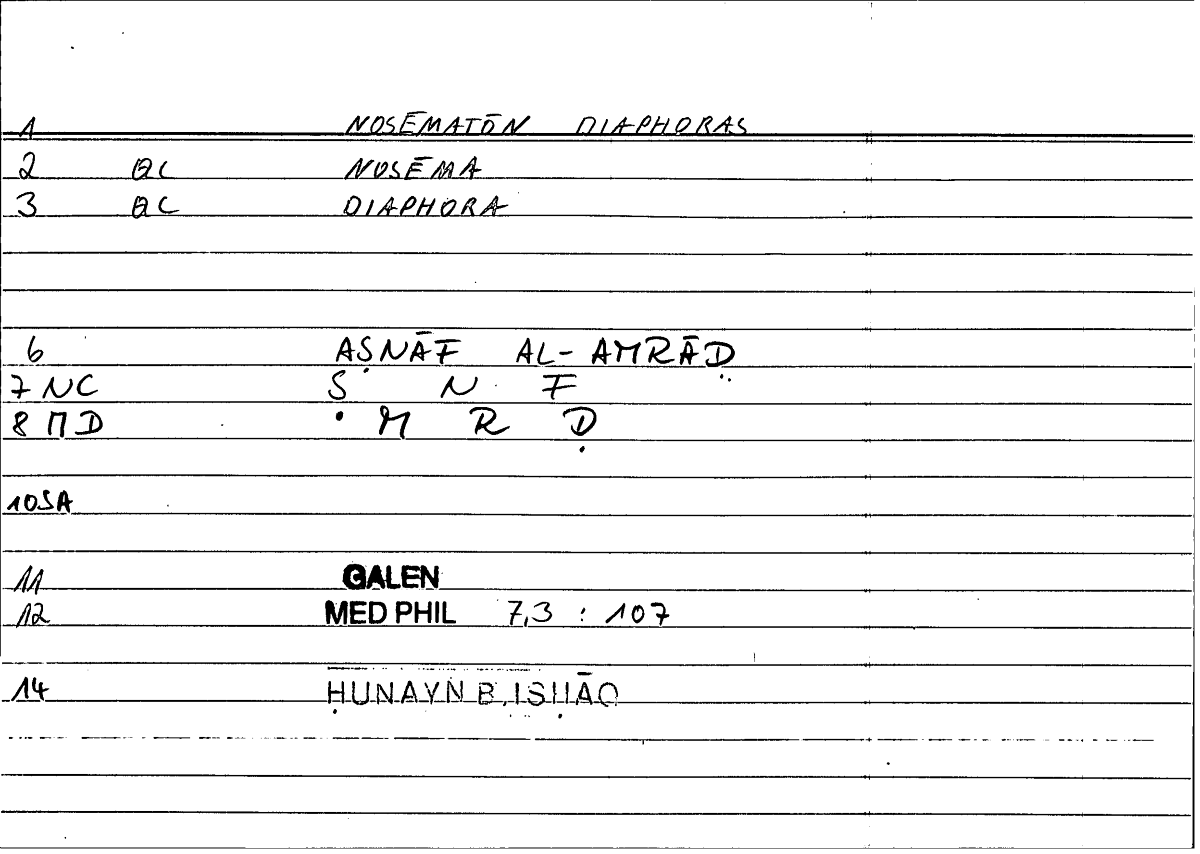 1 NOSĒMATŌN DIAPHORAS
2 QC NOSĒMA
3 QC DIAPHORA
6 AṢNĀF AL-AMRĀḌ
7 NC Ṣ N F
8 MD • M R Ḍ
10SA
11 GALEN
12 MED PHIL 7,3 : 107
14 ḤUNAYN B. ISḤĀQ